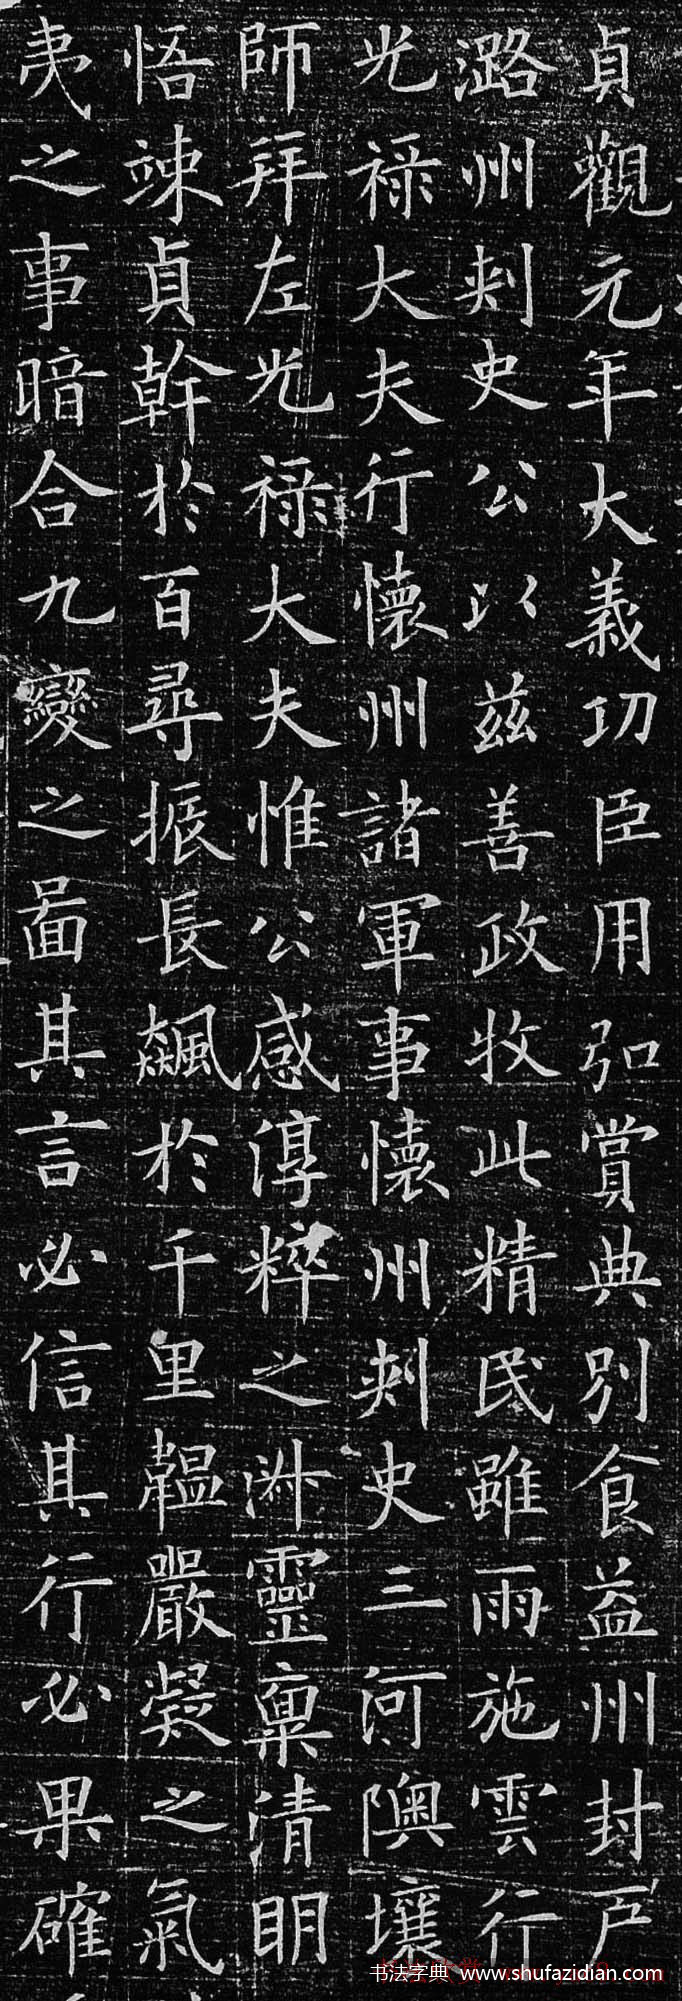 貞觀元年大義功臣用弘賞典別食益州封戸
潞州刺史公以茲善政牧此精民雖雨施雲行
光祿大夫行懷州諸軍事懷州刺史三河隩壤
師拜左光祿大夫惟公感淳粹之淋靈稟清明
悟竦貞幹於百尋振長飆於千里韞嚴凝之氣
夷之事暗合九變之啚其言必信其行必果確
书法字典 www.shufazidian.com